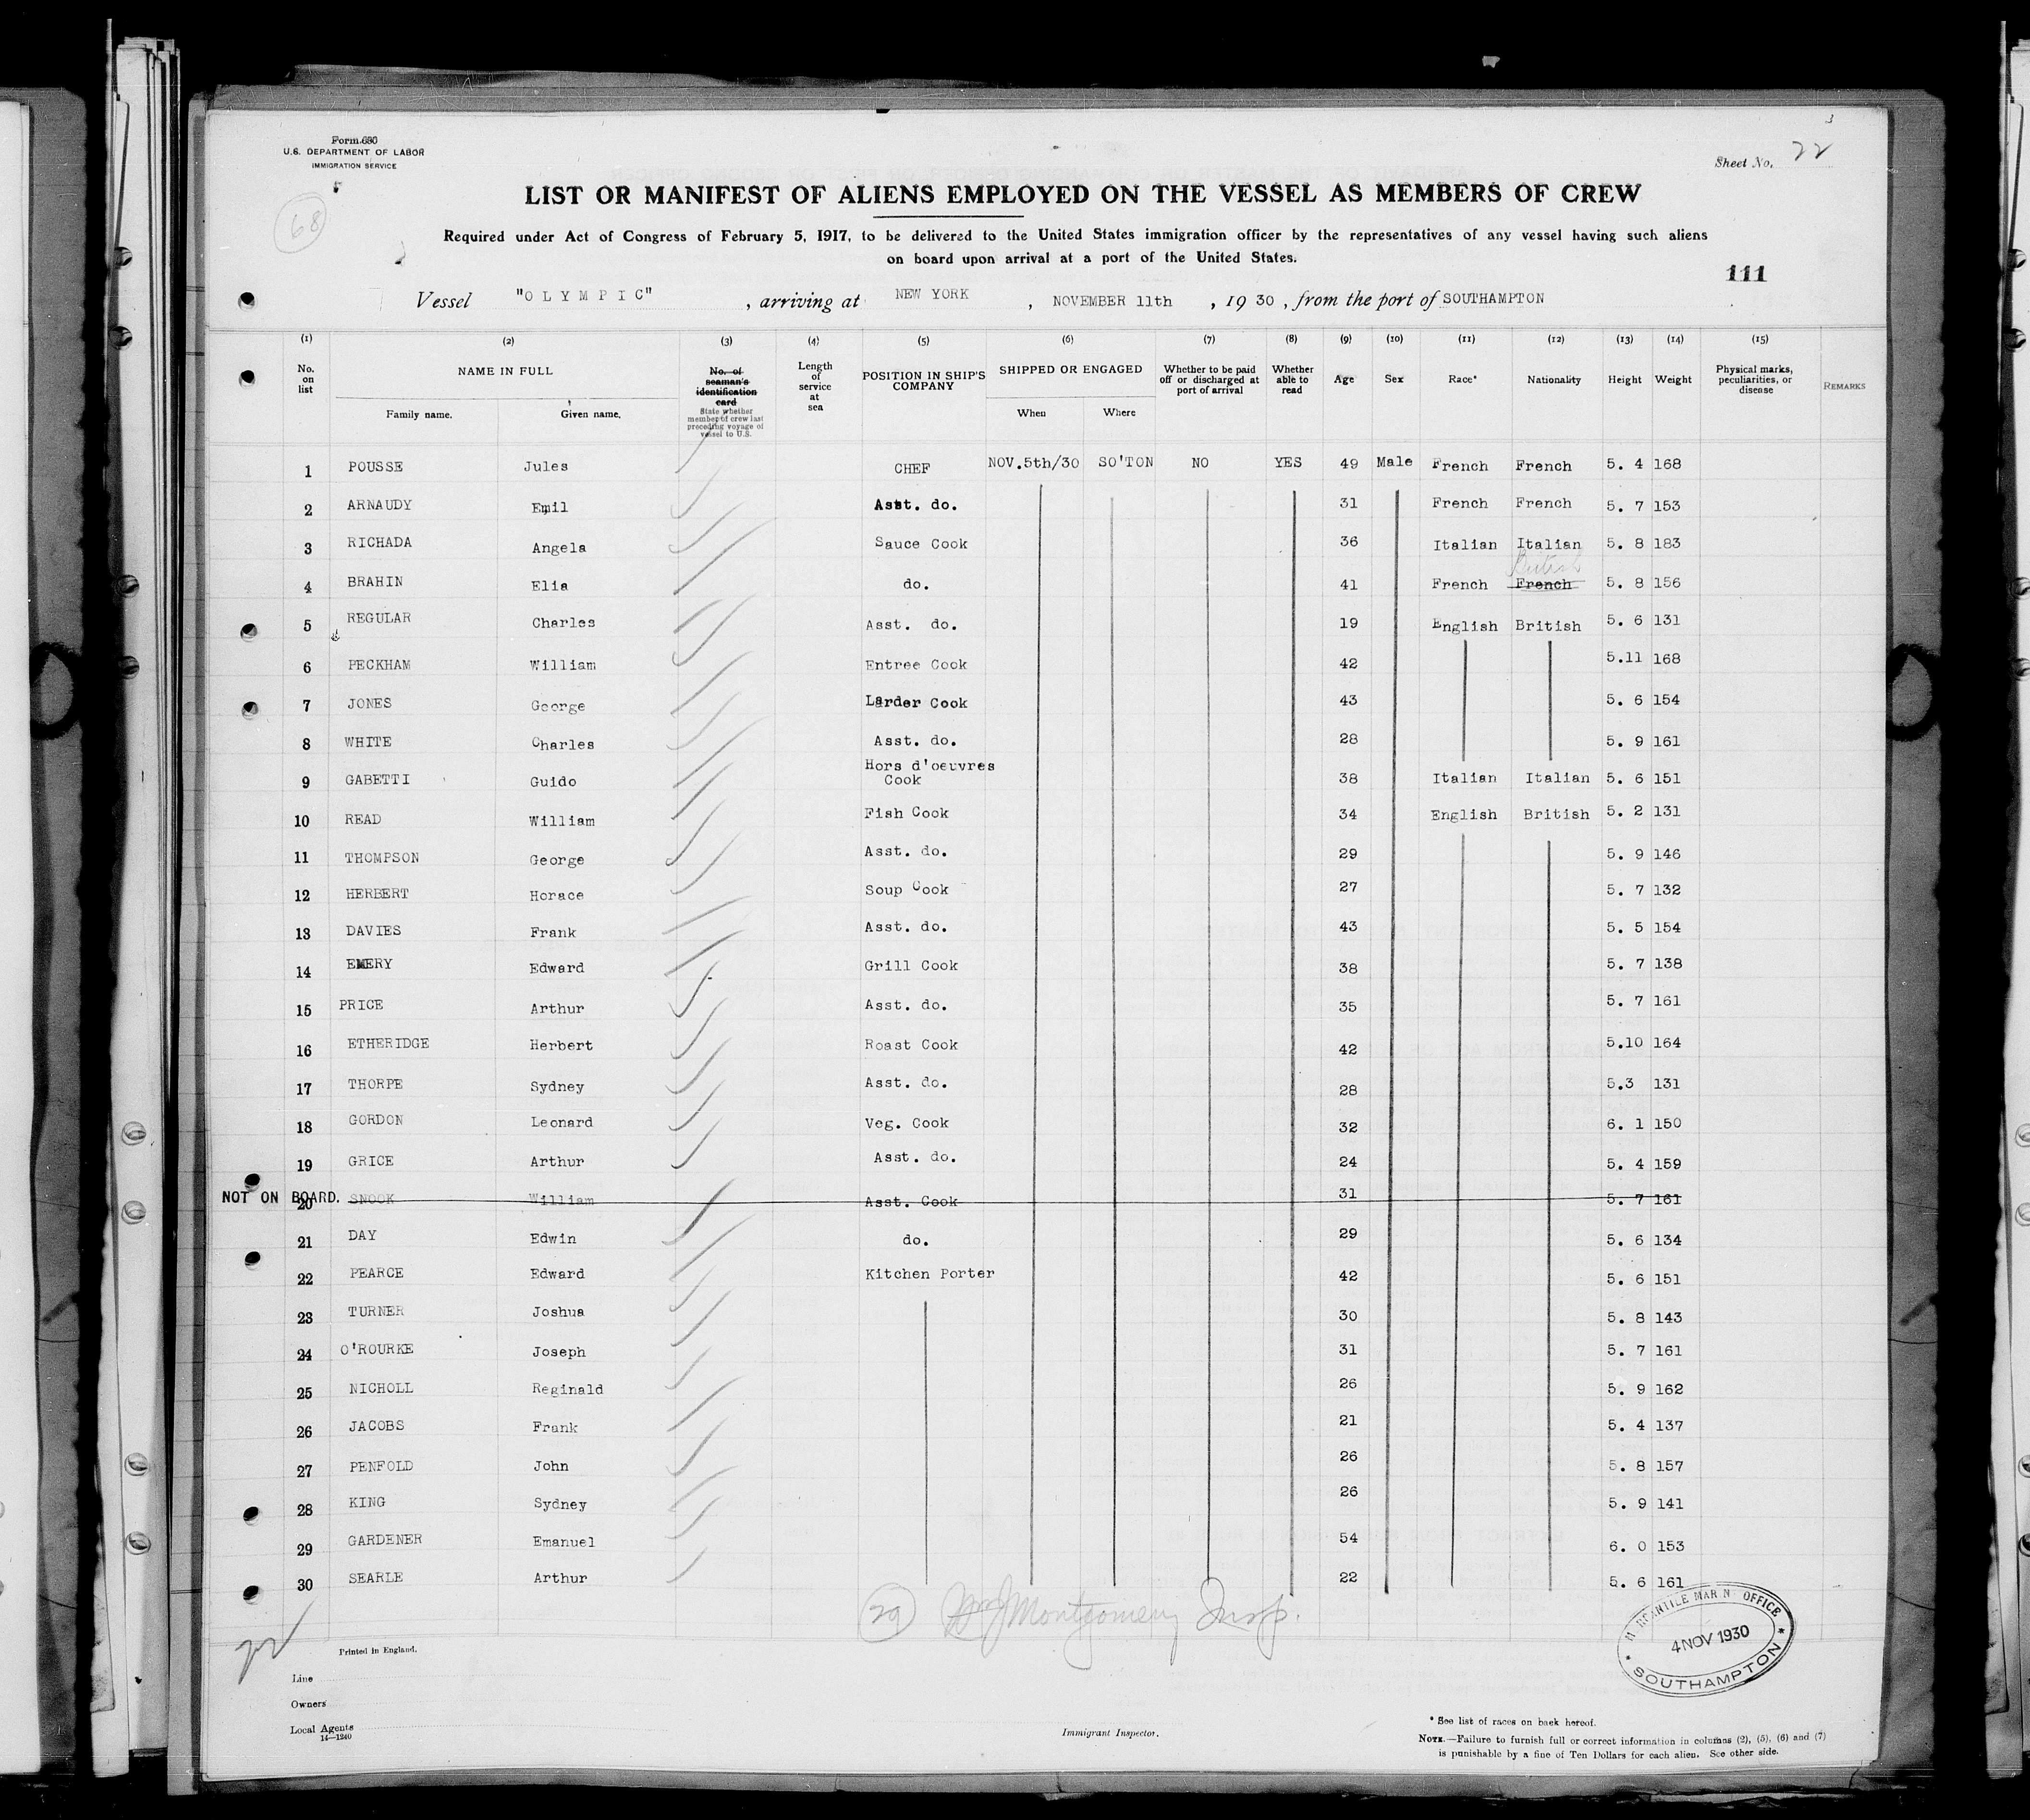 3
Form 680
U.S. DEPARTMENT OF LABOR
IMMIGRATION SERVICE
Sheet No. 22
68
LIST OR MANIFEST OF ALIENS EMPLOYED ON THE VESSEL AS MEMBERS OF CREW
Required under Act of Congress of February 5, 1917, to be delivered to the United States immigration officer by the representatives of any vessel having such aliens
on board upon arrival at a port of the United States.
111
Vessel "OLYMPIC" , arriving at NEW YORK , NOVEMBER 11th , 19 30 , from the port of SOUTHAMPTON
(1) (2) (3) (4) (5) (6) (7) (8) (9) (10) (11) (12) (13) (14) (15)
No. on list
NAME IN FULL
Family name. Given name.
No. of seaman's identification card
State whether member of crew last preceding voyage of vessel to U.S.
Length of service at sea
POSITION IN SHIP'S COMPANY
SHIPPED OR ENGAGED
When Where
Whether to be paid off or discharged at port of arrival
Whether able to read
Age
Sex
Race*
Nationality
Height
Weight
Physical marks, peculiarities, or disease
REMARKS
1 POUSSE Jules CHEF NOV.5th/30 SO'TON NO YES 49 Male French French 5. 4 168
2 ARNAUDY Emil Asst. do. 31 French French 5. 7 153
3 RICHADA Angela Sauce Cook 36 Italian Italian 5. 8 183
British
4 BRAHIN Elia do. 41 French French 5. 8 156
5 REGULAR Charles Asst. do. 19 English British 5. 6 131
6 PECKHAM William Entree Cook 42 5.11 168
7 JONES George Larder Cook 43 5. 6 154
8 WHITE Charles Asst. do. 28 5. 9 161
9 GABETTI Guido Hors d'oeuvres Cook 38 Italian Italian 5. 6 151
10 READ William Fish Cook 34 English British 5. 2 131
11 THOMPSON George Asst. do. 29 5. 9 146
12 HERBERT Horace Soup Cook 27 5. 7 132
13 DAVIES Frank Asst. do. 43 5. 5 154
14 EMERY Edward Grill Cook 38 5. 7 138
15 PRICE Arthur Asst. do. 35 5. 7 161
16 ETHERIDGE Herbert Roast Cook 42 5.10 164
17 THORPE Sydney Asst. do. 28 5.3 131
18 GORDON Leonard Veg. Cook 32 6. 1 150
19 GRICE Arthur Asst. do. 24 5. 4 159
NOT ON BOARD. 20 SNOOK William Asst. Cook 31 5. 7 161
21 DAY Edwin do. 29 5. 6 134
22 PEARCE Edward Kitchen Porter 42 5. 6 151
23 TURNER Joshua 30 5. 8 143
24 O'ROURKE Joseph 31 5. 7 161
25 NICHOLL Reginald 26 5. 9 162
26 JACOBS Frank 21 5. 4 137
27 PENFOLD John 26 5. 8 157
28 KING Sydney 26 5. 9 141
29 GARDENER Emanuel 54 6. 0 153
30 SEARLE Arthur 22 5. 6 161
29 Wm J Montgomery Insp.
MERCANTILE MARINE OFFICE
4 NOV 1930
* SOUTHAMPTON *
Printed in England.
Line
Owners
Local Agents
14—1240
Immigrant Inspector.
* See list of races on back hereof.
NOTE.—Failure to furnish full or correct information in columns (2), (5), (6) and (7)
is punishable by a fine of Ten Dollars for each alien. See other side.